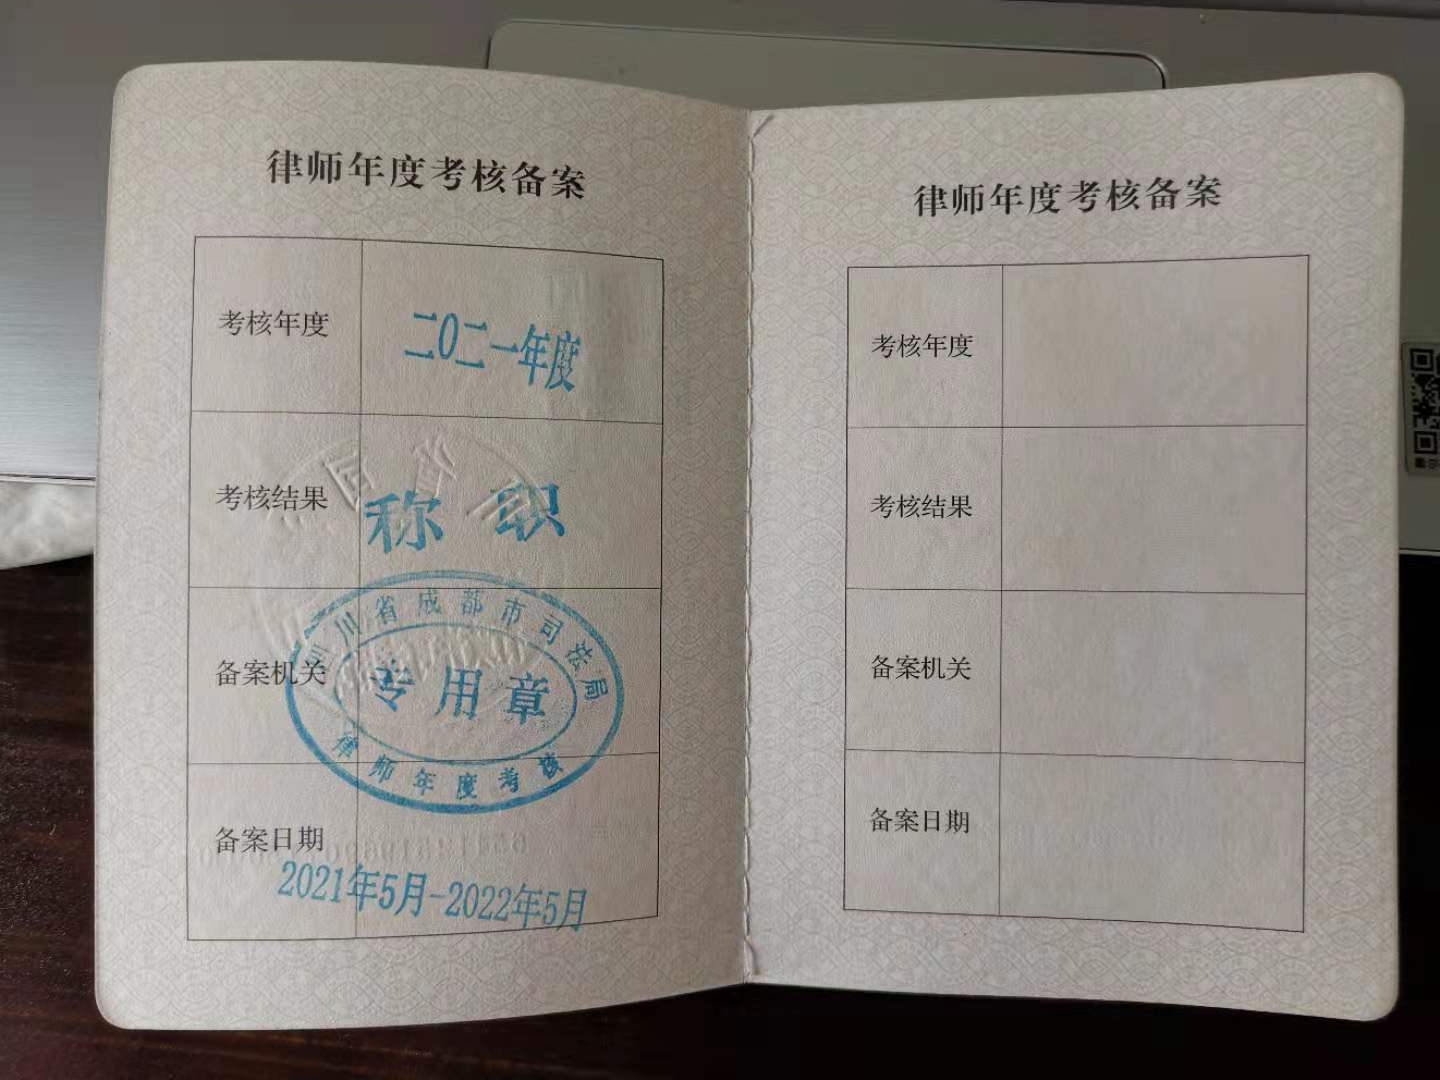 律师年度考核备案
考核年度
二〇二一年度
考核结果
称 职
备案机关
四川省成都市司法局
专用章
律师年度考核
备案日期
2021年5月-2022年5月
律师年度考核备案
考核年度
考核结果
备案机关
备案日期